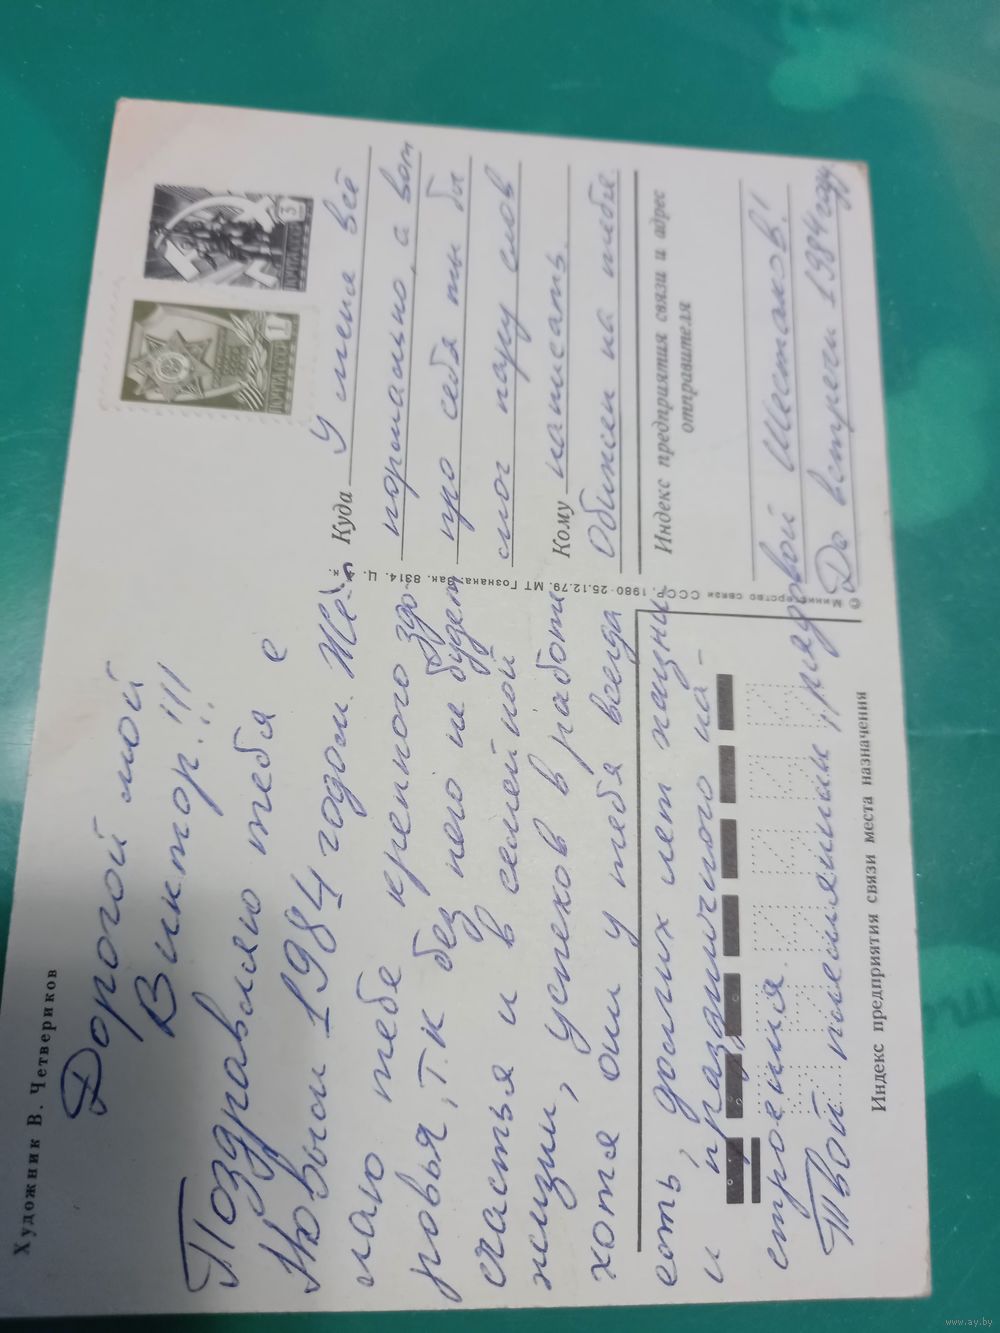 Художник В. Четвериков
Дорогой мой
Виктор!!!
Поздравляю тебя с
Новым 1984 годом. Же-
лаю тебе крепного здо-
ровья, т.к без него не будет
счастья и в семейной
жизни, успехов в работе
хотя они у тебя всегда
есть, долгих лет жизни
и праздничного на-
строения.
Твой племянник, рядовой Шестаков!
До встречи 1984 году
ПОЧТА СССР
1
ПОЧТА СССР
3
Куда
У меня всё
нормально, а вот
про себя ты бы
смог пару слов
Кому
написать.
Обижен на тебя
Индекс предприятия связи и адрес
отправителя
© Министерство связи СССР. 1980 25.12.79. МТ Гознака. Зак. 8314. Ц. к.
Индекс предприятия связи места назначения
www.ay.by